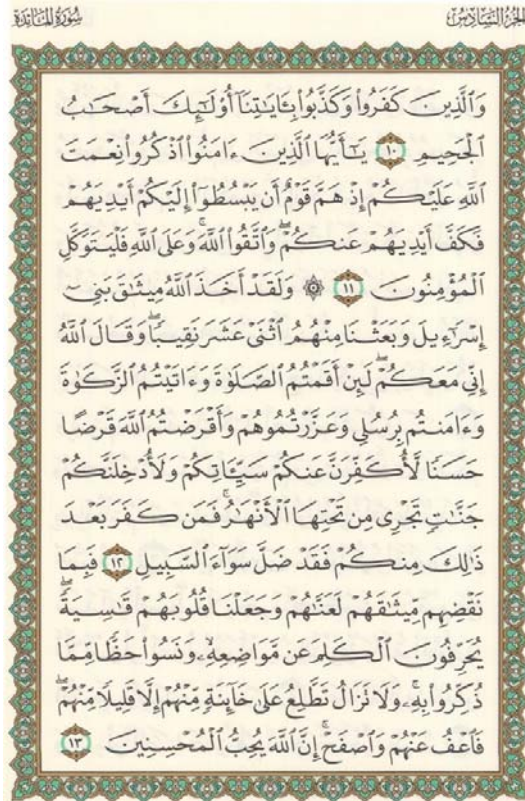 الجزء السادس
سورة المائدة
وَٱلَّذِينَ كَفَرُوا۟ وَكَذَّبُوا۟ بِـَٔايَـٰتِنَآ أُو۟لَـٰٓئِكَ أَصْحَـٰبُ
ٱلْجَحِيمِ ١٠ يَـٰٓأَيُّهَا ٱلَّذِينَ ءَامَنُوا۟ ٱذْكُرُوا۟ نِعْمَتَ
ٱللَّهِ عَلَيْكُمْ إِذْ هَمَّ قَوْمٌ أَن يَبْسُطُوٓا۟ إِلَيْكُمْ أَيْدِيَهُمْ
فَكَفَّ أَيْدِيَهُمْ عَنكُمْ ۖ وَٱتَّقُوا۟ ٱللَّهَ ۚ وَعَلَى ٱللَّهِ فَلْيَتَوَكَّلِ
ٱلْمُؤْمِنُونَ ١١ ۞ وَلَقَدْ أَخَذَ ٱللَّهُ مِيثَـٰقَ بَنِىٓ
إِسْرَٰٓءِيلَ وَبَعَثْنَا مِنْهُمُ ٱثْنَىْ عَشَرَ نَقِيبًا ۖ وَقَالَ ٱللَّهُ
إِنِّى مَعَكُمْ ۖ لَئِنْ أَقَمْتُمُ ٱلصَّلَوٰةَ وَءَاتَيْتُمُ ٱلزَّكَوٰةَ
وَءَامَنتُم بِرُسُلِى وَعَزَّرْتُمُوهُمْ وَأَقْرَضْتُمُ ٱللَّهَ قَرْضًا
حَسَنًا لَّأُكَفِّرَنَّ عَنكُمْ سَيِّـَٔاتِكُمْ وَلَأُدْخِلَنَّكُمْ
جَنَّـٰتٍ تَجْرِى مِن تَحْتِهَا ٱلْأَنْهَـٰرُ ۚ فَمَن كَفَرَ بَعْدَ
ذَٰلِكَ مِنكُمْ فَقَدْ ضَلَّ سَوَآءَ ٱلسَّبِيلِ ١٢ فَبِمَا
نَقْضِهِم مِّيثَـٰقَهُمْ لَعَنَّـٰهُمْ وَجَعَلْنَا قُلُوبَهُمْ قَـٰسِيَةً ۖ
يُحَرِّفُونَ ٱلْكَلِمَ عَن مَّوَاضِعِهِۦ ۙ وَنَسُوا۟ حَظًّا مِّمَّا
ذُكِّرُوا۟ بِهِۦ ۚ وَلَا تَزَالُ تَطَّلِعُ عَلَىٰ خَآئِنَةٍ مِّنْهُمْ إِلَّا قَلِيلًا مِّنْهُمْ ۖ
فَٱعْفُ عَنْهُمْ وَٱصْفَحْ ۚ إِنَّ ٱللَّهَ يُحِبُّ ٱلْمُحْسِنِينَ ١٣